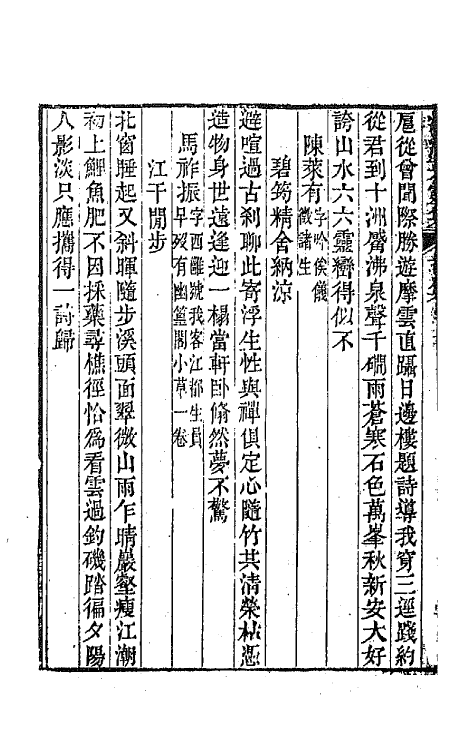 扈從曾聞際勝遊摩雲直躡日邊樓題詩導我穿三逕踐約
從君到十洲觱沸泉聲千磵雨蒼寒石色萬峯秋新安大好
誇山水六六靈巒得似不
陳萊有字吟侯儀徵諸生
碧筠精舍納涼
避暄過古刹聊此寄浮生性與禪俱定心隨竹共清榮枯憑
造物身世遠逢迎一榻當軒卧翛然夢不驚
馬祚振字西雝號我客江都生員早歿有幽篁閣小草一卷
江干閒步
北窗睡起又斜暉隨步溪頭面翠微山雨乍晴巖壑瘦江潮
初上鯉魚肥不因採藥尋樵徑恰爲看雲過釣磯踏徧夕陽
人影淡只應攜得一詩歸